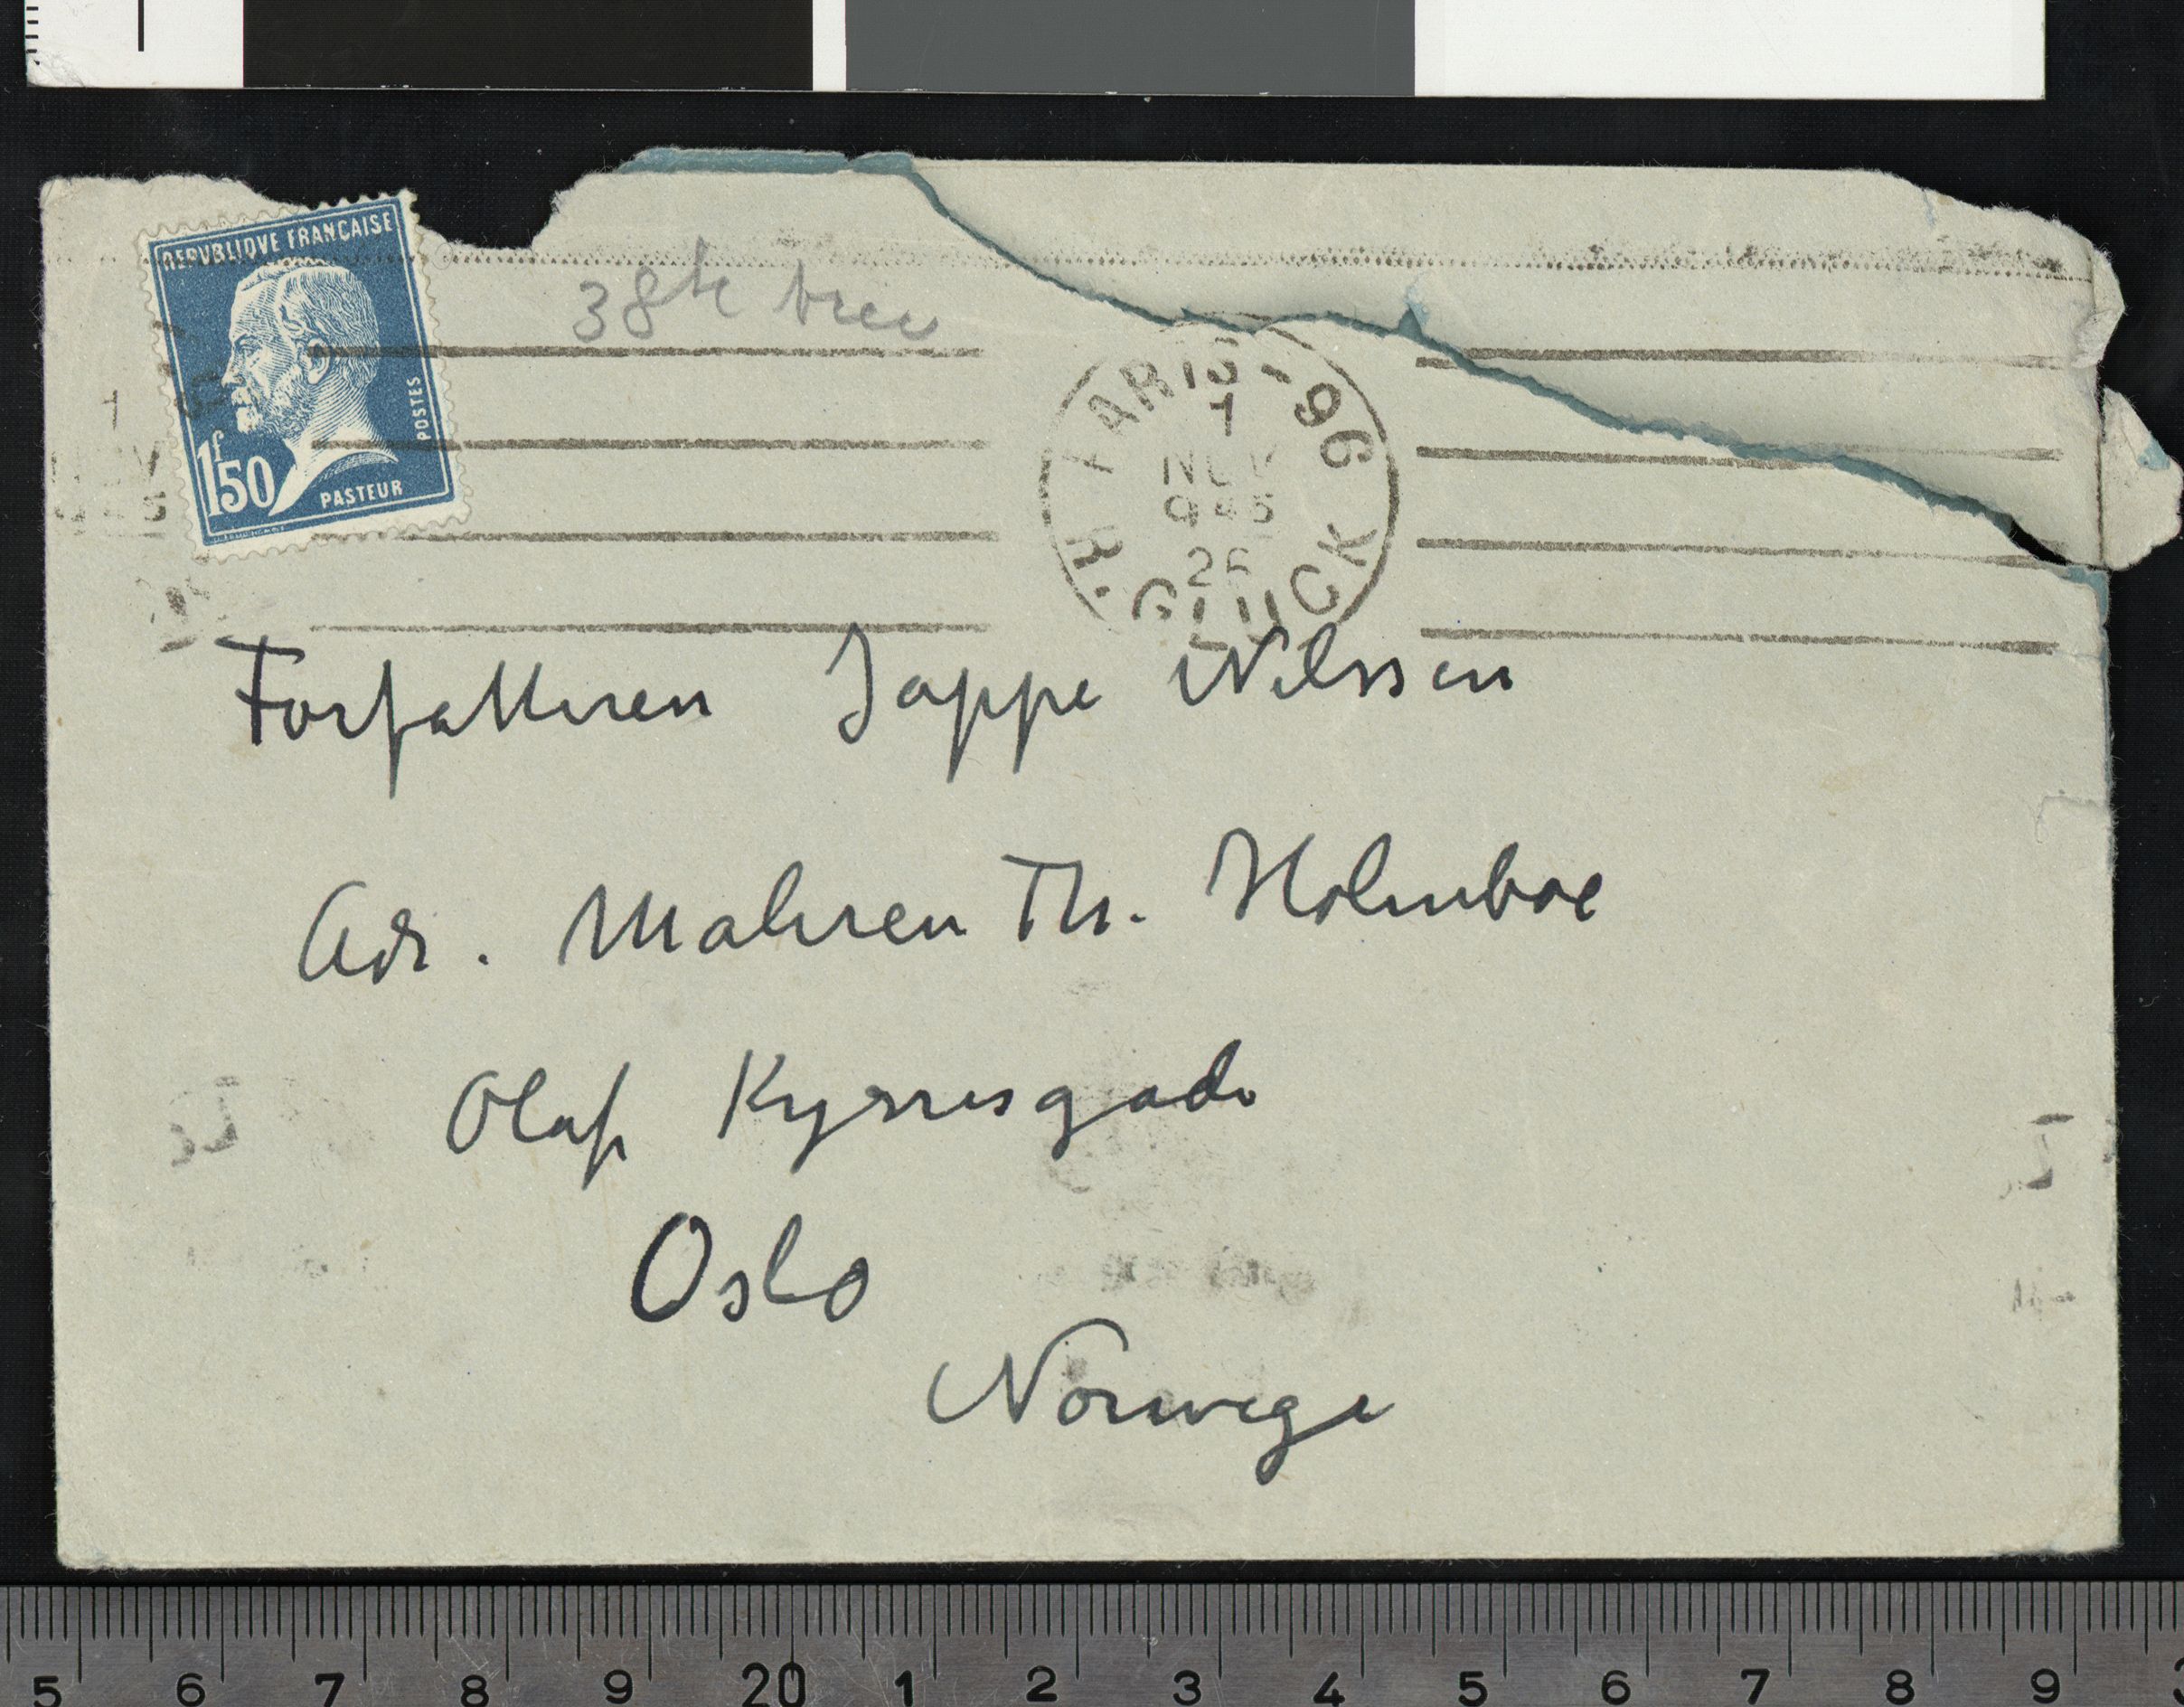 REPVBLIQVE FRANÇAISE
POSTES
1f50
PASTEUR
38te brev
PARIS-96
7
NOV
945
26
R. GLUCK
Forfatteren Jappe Nilssen
Adr. Maleren Th. Holmboe
Olaf Kyrresgade
Oslo
Norwege
5 6 7 8 9 20 1 2 3 4 5 6 7 8 9